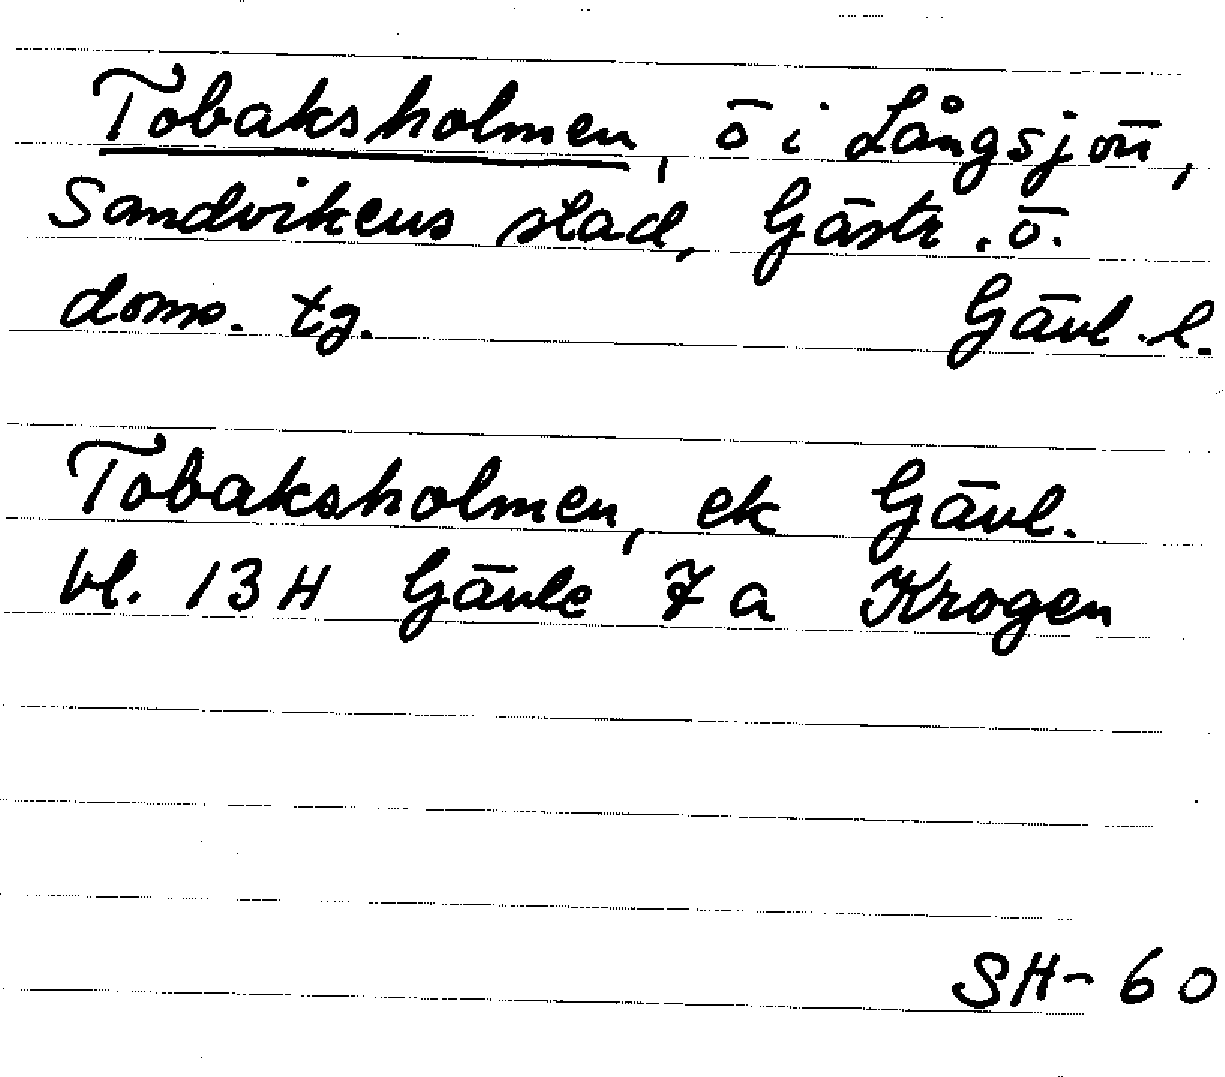 Tobaksholmen, ö i Långsjön,
Sandvikens stad, Gästr. ö.
doms. tg. Gävl. l.
Tobaksholmen, ek Gävl.
bl. 13 H Gävle 7 a Krogen
SH-60